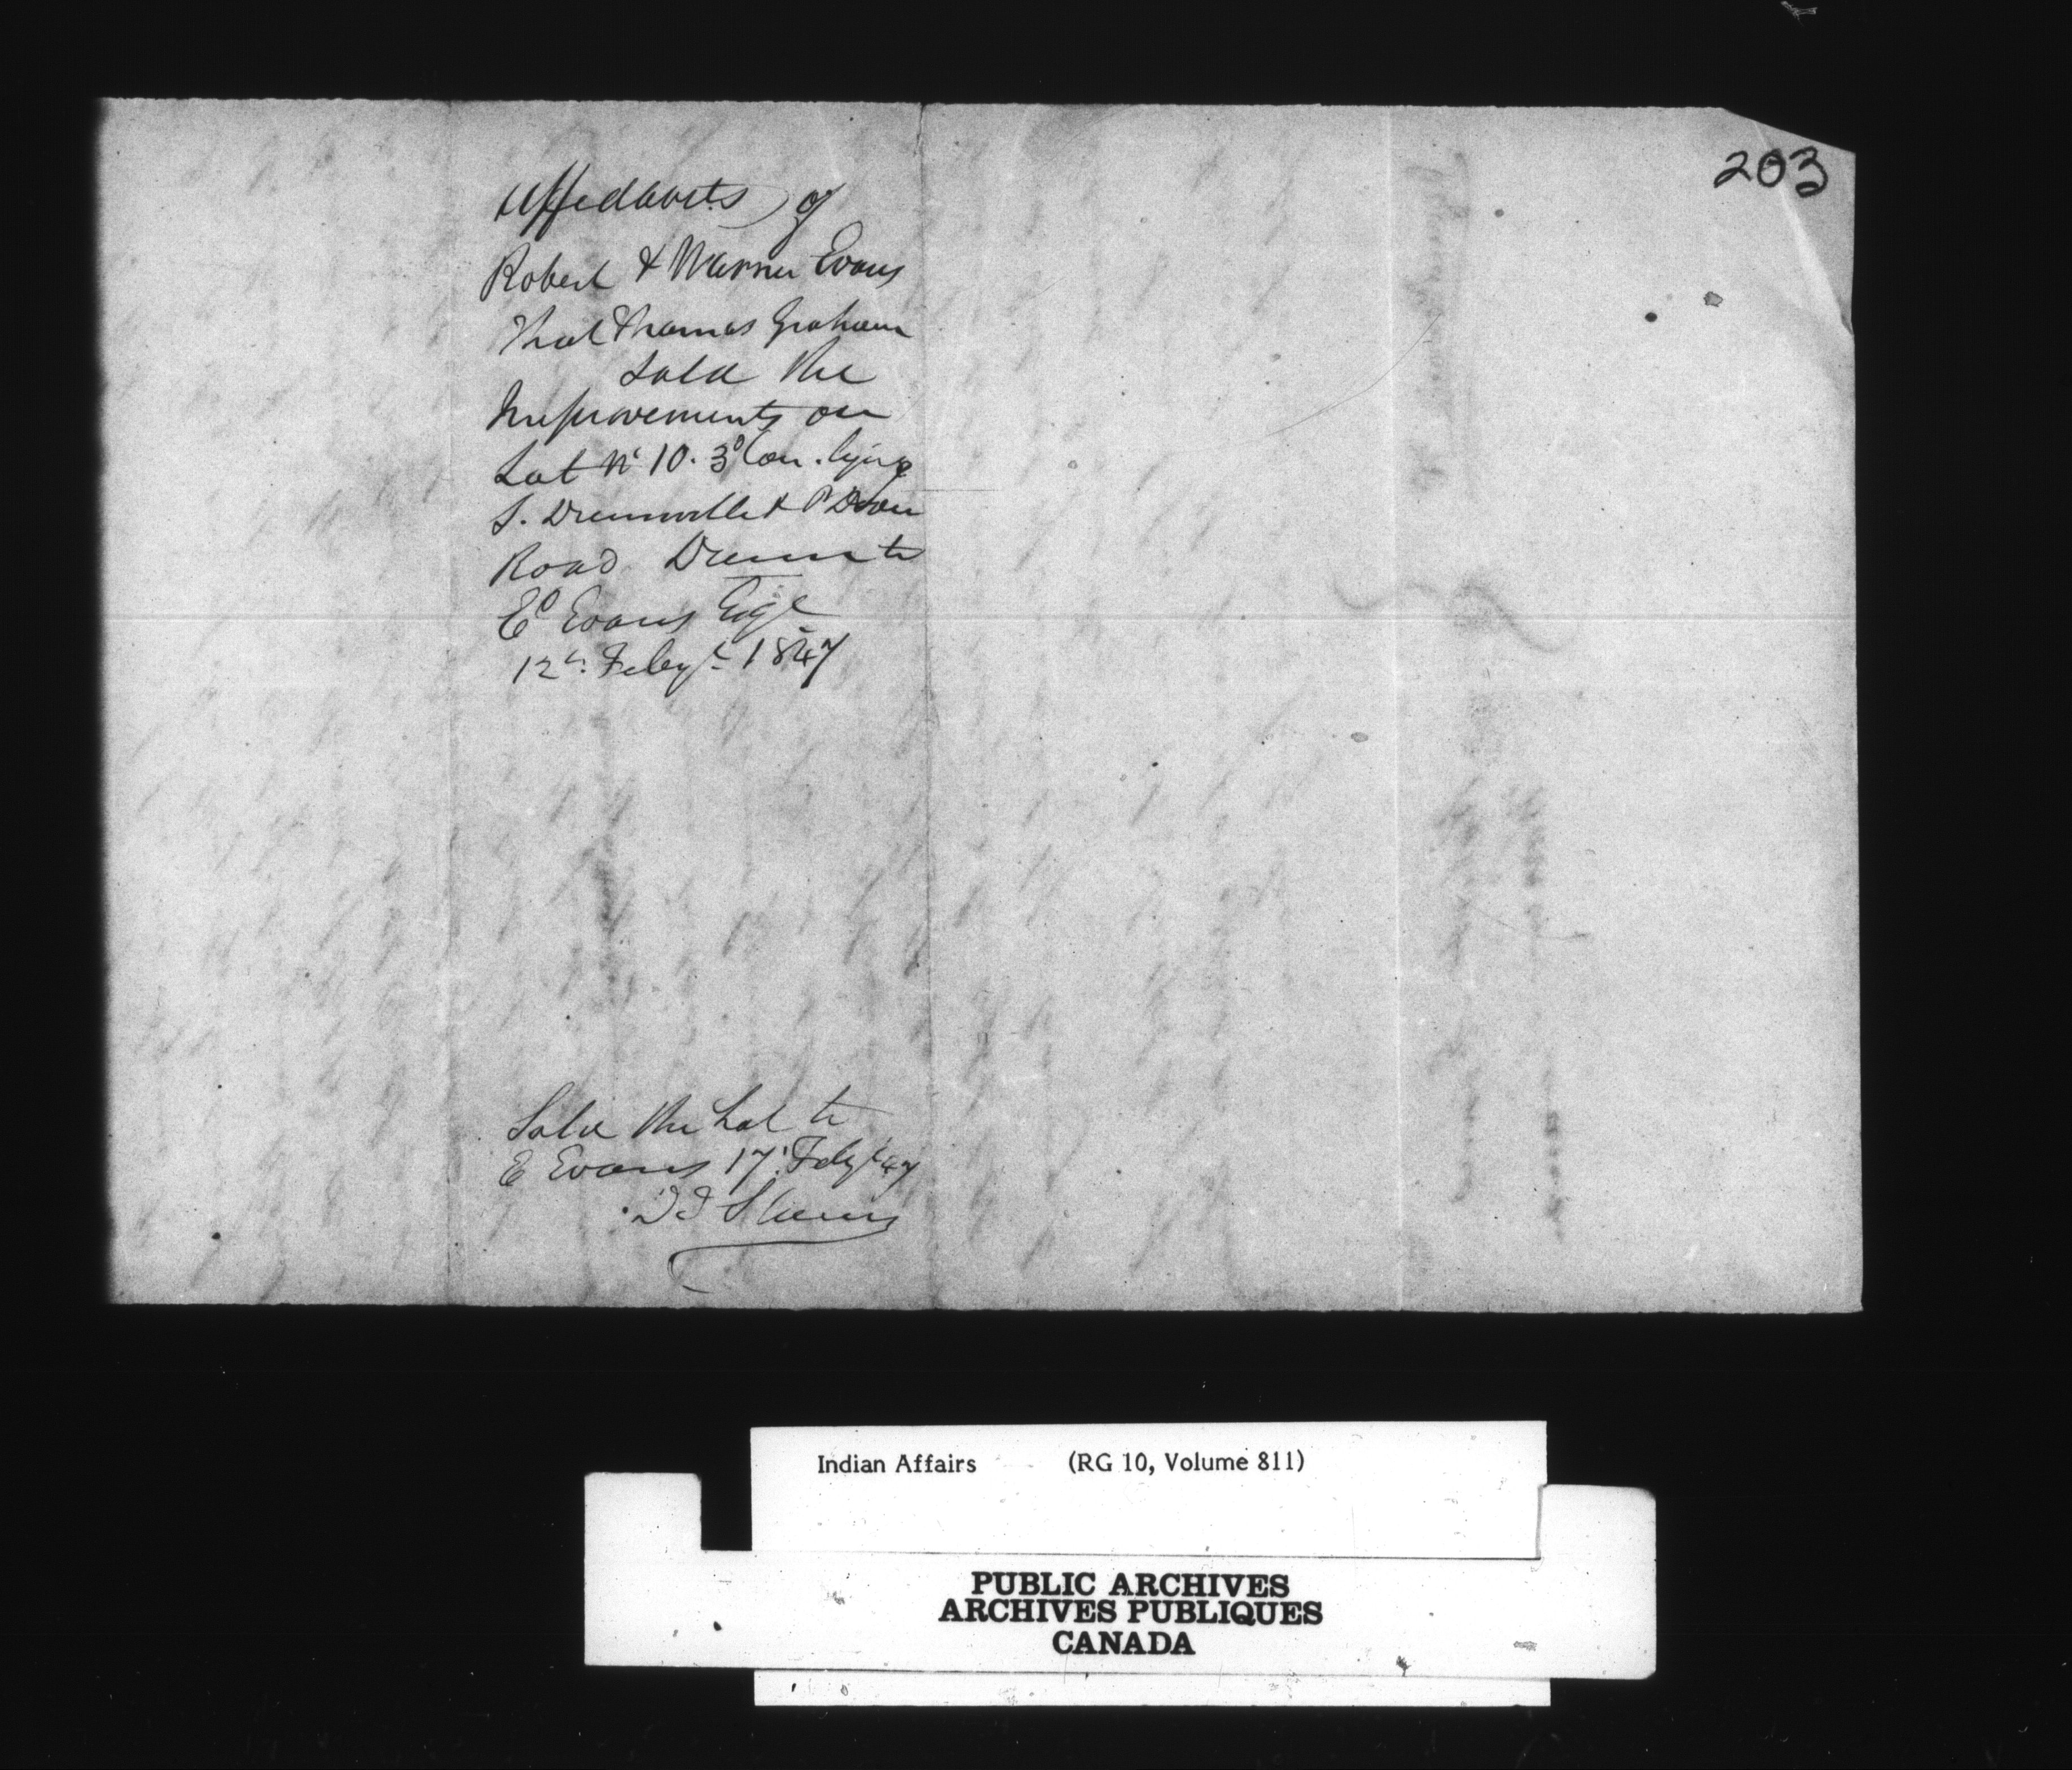 203
Affedavits of
Robert & Warner Evans
that Thomas Graham
Sold the
Improvements on
Lot No 10. 3d Con. lying
S. Drummville & P Dover
Road Drumm to
Ed Evans Esqe
12th Feby 1847
Sold the Lot to
E Evans 17 Feby 47
Indian Affairs (RG 10, Volume 811)
PUBLIC ARCHIVES
ARCHIVES PUBLIQUES
CANADA